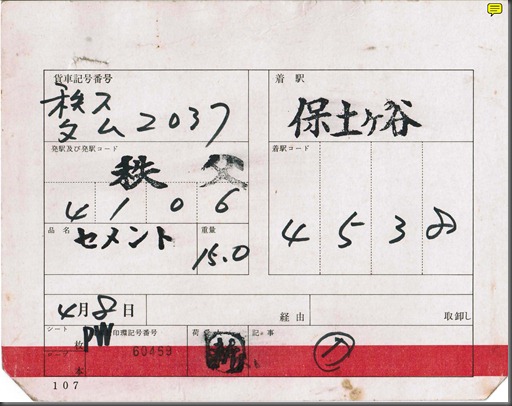 貨車記号番号
秩父
タム2037
着駅
保土ヶ谷
発駅及び発駅コード
秩父
4106
着駅コード
4538
品名
セメント
重量
15.0
4月8日
経由
取卸し
シート
PW
枚
本
印環記号番号
60459
記事
107